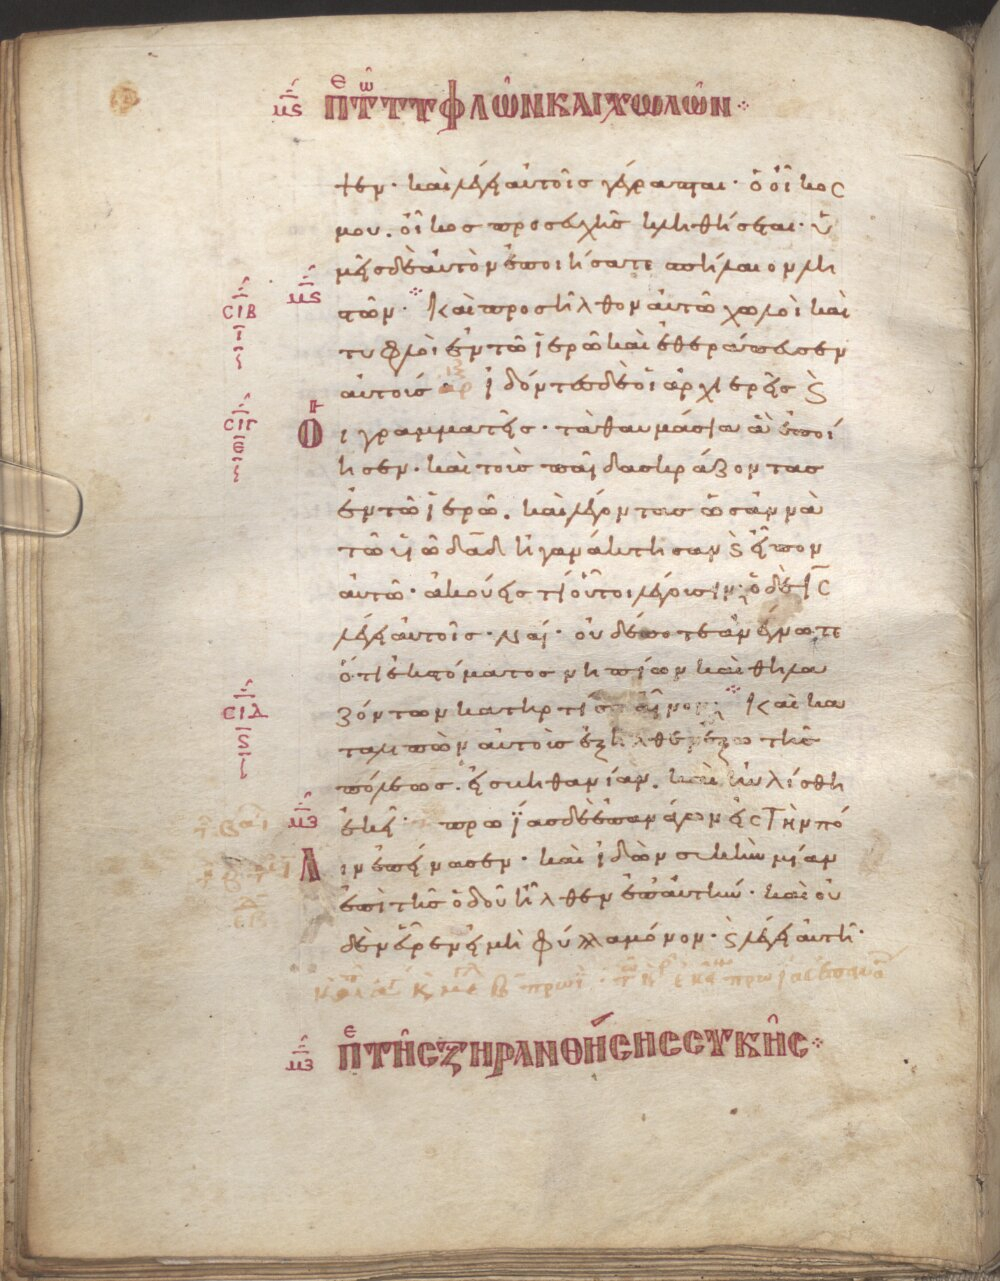 μϛ Πε τω τυφλῶν καὶ χωλῶν
ψεν· καὶ λέγει αὐτοῖς γέγραπται· ὁ οἶκος
μου, οἶκος προσευχῆς κληθήσεται· ὑ
μεῖς δὲ αὐτὸν ἐποιήσατε σπήλαιον λη
μϛ στῶν· Καὶ προσῆλθον αὐτῶ χωλοὶ καὶ
ϹΙΒ
Ι
τυφλοὶ ἐν τῶ ἱερῶ καὶ ἐθεράπευσεν
αὐτούς αρ ἰδόντες δὲ οἱ ἀρχιερεῖς ϗ
ϹΙΓ
Ε
Οἱ γραμματεῖς· τὰ θαυμάσια ἃ ἐποί
ησεν· καὶ τοὺς παῖδας κράζοντας
ἐν τῶ ἱερῶ, καὶ λέγοντας ὡσαννὰ
τῶ υἱῶ δαδ ἠγανάκτησαν ϗ εἶπον
αὐτῶ· ἀκούεις τί οὗτοι λέγουσιν; ὁ δὲ ΙϹ
λέγει αὐτοῖς· ναί· οὐδέποτε ἀνέγνωτε
ὅτι ἐκ στόματος νηπίων καὶ θηλα
ϹΙΔ
Ϛ
ζόντων κατηρτίσω αἶνον; Καὶ κα
ταλιπὼν αὐτοὺς ἐξῆλθεν ἔξω τῆς
πόλεως, εἰς βηθανίαν, καὶ ηὐλίσθη
μζ ἐκεῖ· πρωΐας δὲ ἐπανάγων εἰς Τὴν πό
Λιν ἐπείνασεν· καὶ ἰδὼν συκῆν μίαν
ἐπὶ τῆς ὁδοῦ ἦλθεν ἐπ' αὐτήν· καὶ οὐ
δὲν εὗρεν εἰ μὴ φύλλα μόνον· ϗ λέγει αὐτῆ·
μζ Πε τῆς ξηρανθήσης συκῆς